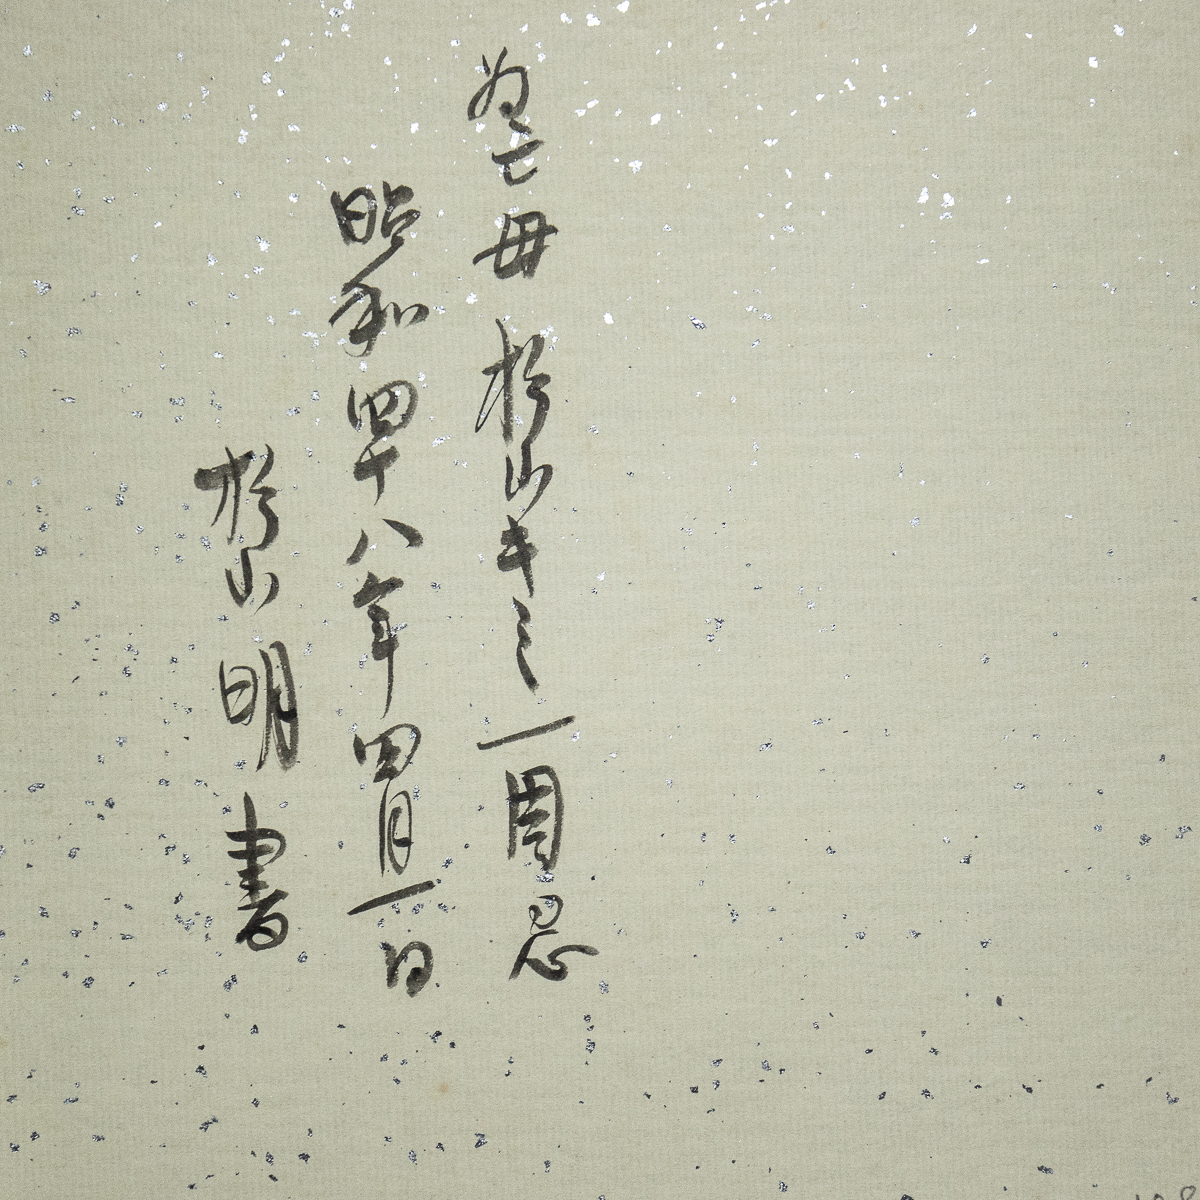 為亡母 杉山キミ一周忌
昭和四十八年四月一日
杉山明書